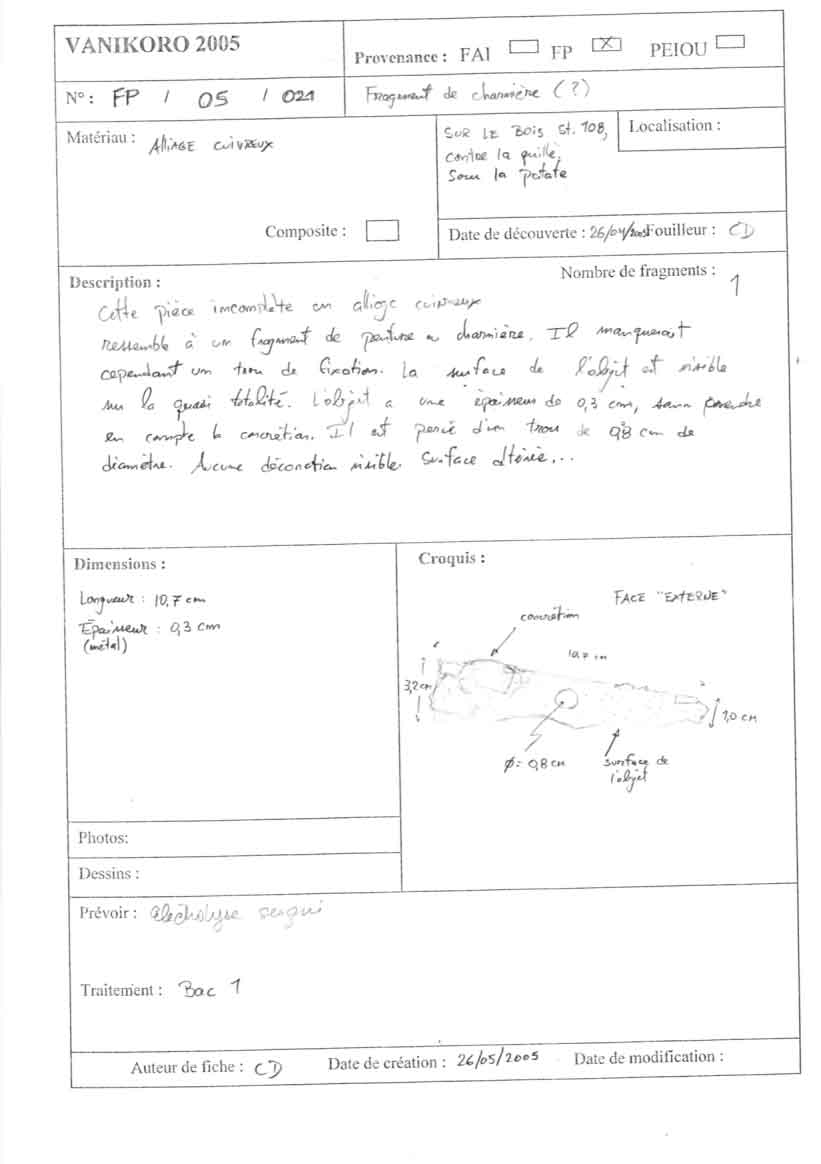 VANIKORO 2005
Provenance : FAI FP X PEIOU
N° : FP / 05 / 021
Fragment de charnière (?)
Matériau : AlliAGE CUIVREUX
SUR LE BOIS St. 108,
contre la quille,
Sous la patate
Localisation :
Composite :
Date de découverte : 26/04/2005 Fouilleur : CD
Description :
Nombre de fragments : 1
Cette pièce incomplète en alliage cuivreux
ressemble à un fragment de penture ou charnière. Il manquerait
cependant un trou de fixation. La surface de l'objet est visible
sur la quasi totalité. L'objet a une épaisseur de 0,3 cm, sans prendre
en compte la concrétion. Il est percé d'un trou de 0,8 cm de
diamètre. Aucune décoration visible. Surface altérée...
Dimensions :
Longueur : 10,7 cm
Épaisseur : 0,3 cm
(métal)
Croquis :
FACE "EXTERNE"
concrétion
10,7 cm
3,2 cm
1,0 cm
ϕ = 0,8 cm
surface de
l'objet
Photos:
Dessins :
Prévoir : électrolyse
Traitement : Bac 1
Auteur de fiche : CD Date de création : 26/05/2005 Date de modification :